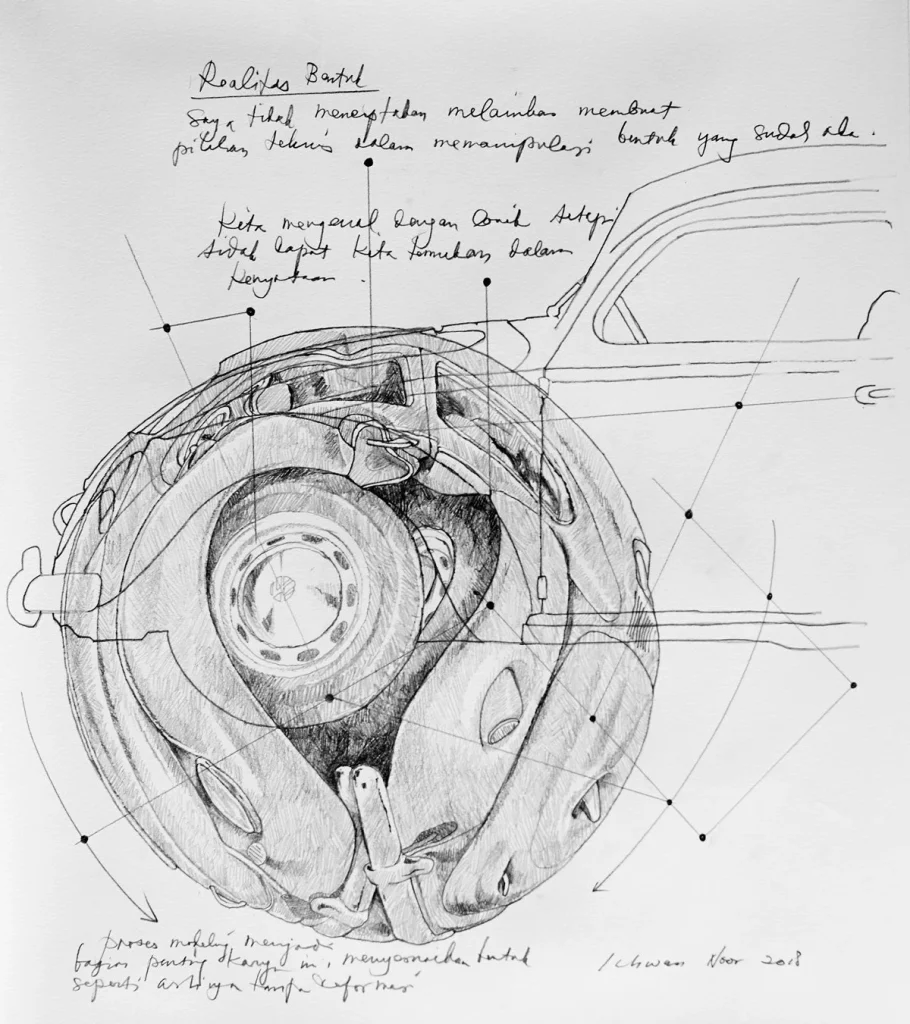 Realitas Bentuk
Saya tidak menciptakan melainkan membuat
pilihan teknis dalam memanipulasi bentuk yang sudah ada.
Kita mengenal dengan baik tetapi
tidak dapat kita temukan dalam
kenyataan.
proses modeling menjadi
bagian penting karya ini, menyesuaikan bentuk
seperti aslinya tanpa deformasi
Ichwan Noor 2018